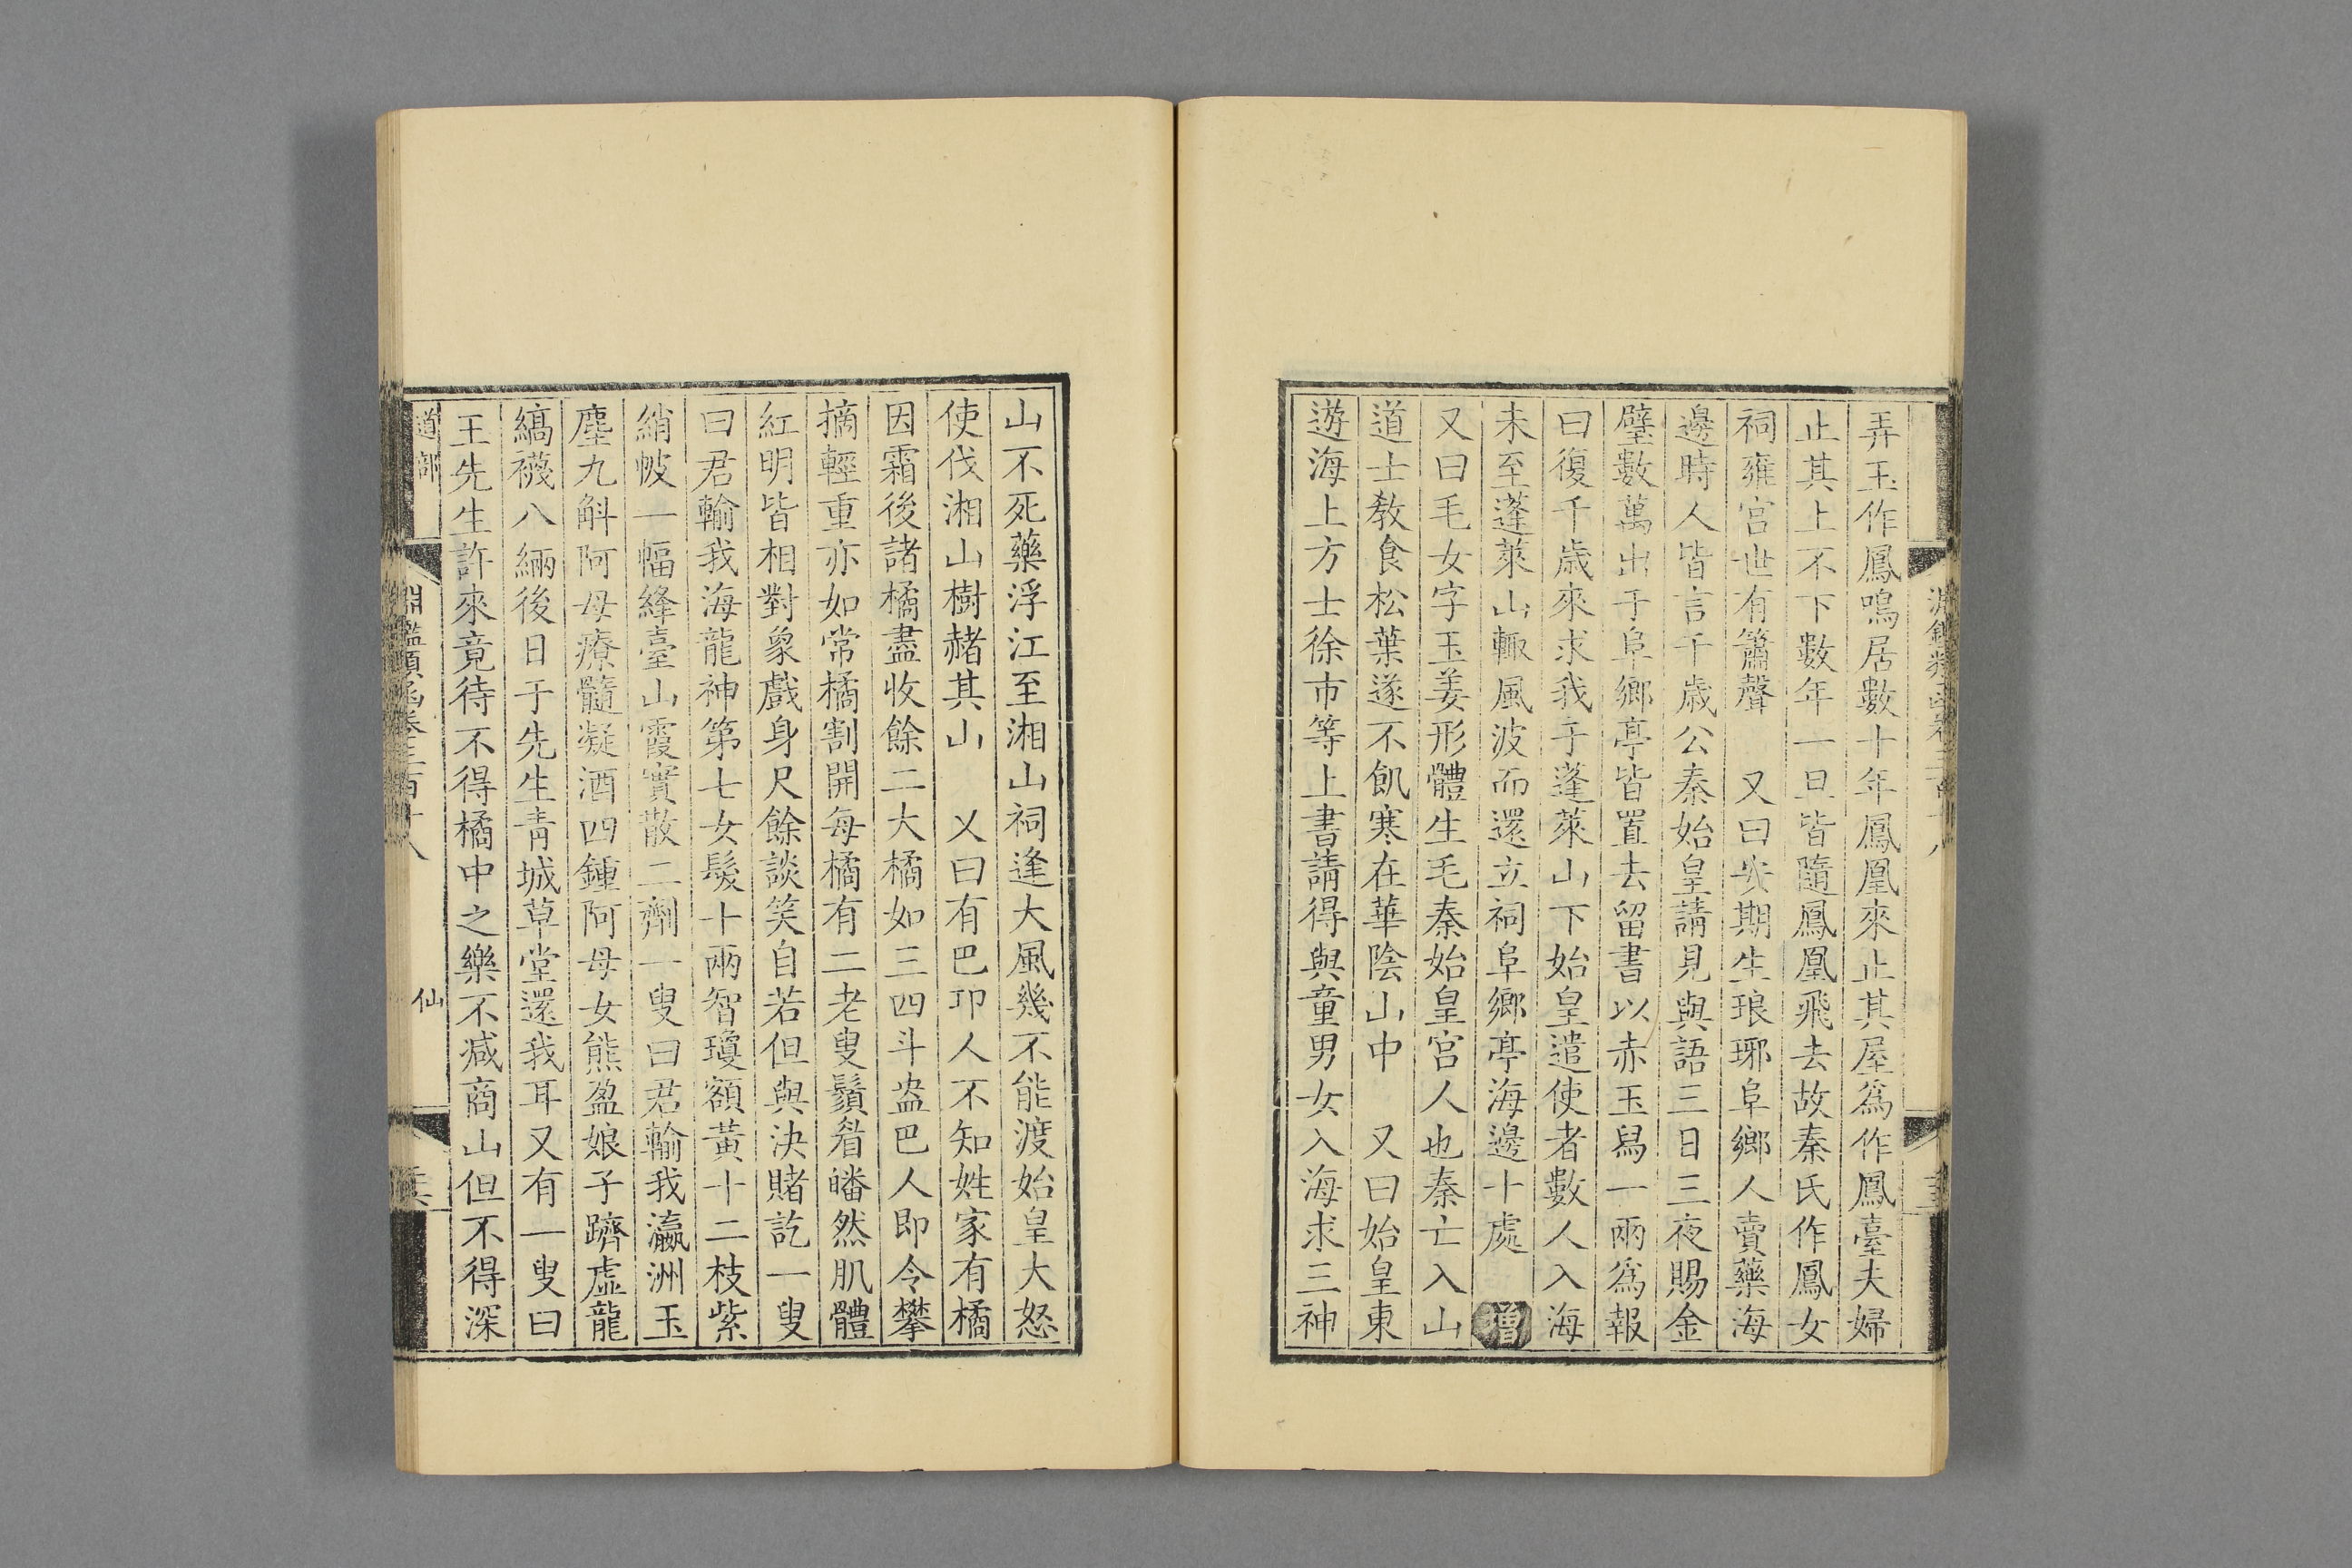 弄玉作鳳鳴居數十年鳳凰來止其屋爲作鳳臺夫婦
止其上不下數年一旦皆隨鳳凰飛去故秦氏作鳳女
祠雍宮世有簫聲　又曰安期生琅琊阜鄉人賣藥海
邊時人皆言千歲公秦始皇請見與語三日三夜賜金
璧數萬出于阜鄉亭皆置去留書以赤玉舃一兩爲報
曰復千歲來求我于蓬萊山下始皇遣使者數人入海
未至蓬萊山輒風波而還立祠阜鄉亭海邊十處　增
又曰毛女字玉姜形體生毛秦始皇宮人也秦亡入山
道士教食松葉遂不飢寒在華陰山中　又曰始皇東
遊海上方士徐市等上書請得與童男女入海求三神
山不死藥浮江至湘山祠逢大風幾不能渡始皇大怒
使伐湘山樹赭其山　又曰有巴邛人不知姓家有橘
因霜後諸橘盡收餘二大橘如三四斗盎巴人即令攀
摘輕重亦如常橘割開每橘有二老叟鬚眉皤然肌體
紅明皆相對象戲身尺餘談笑自若但與決賭訖一叟
曰君輸我海龍神第七女髮十兩智瓊額黃十二枝紫
綃帔一幅絳臺山霞實散二劑一叟曰君輸我瀛洲玉
塵九斛阿母療髓凝酒四鍾阿母女熊盈娘子躋虛龍
縞襪八緉後日于先生青城草堂還我耳又有一叟曰
王先生許來竟待不得橘中之樂不減商山但不得深
道部
淵鑑類函卷三百十八
仙